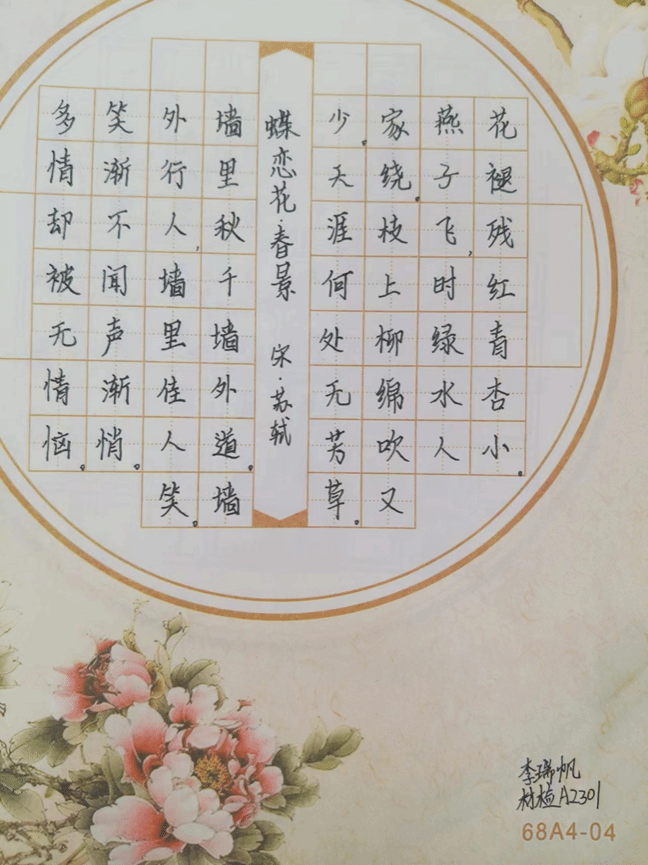 花褪残红青杏小。
燕子飞,时绿水人
家绕。枝上柳绵吹又
少。天涯何处无芳草。
蝶恋花·春景 宋·苏轼
墙里秋千墙外道。墙
外行人,墙里佳人笑。
笑渐不闻声渐悄。
多情却被无情恼。
李瑞帆
材植A2301
68A4-04